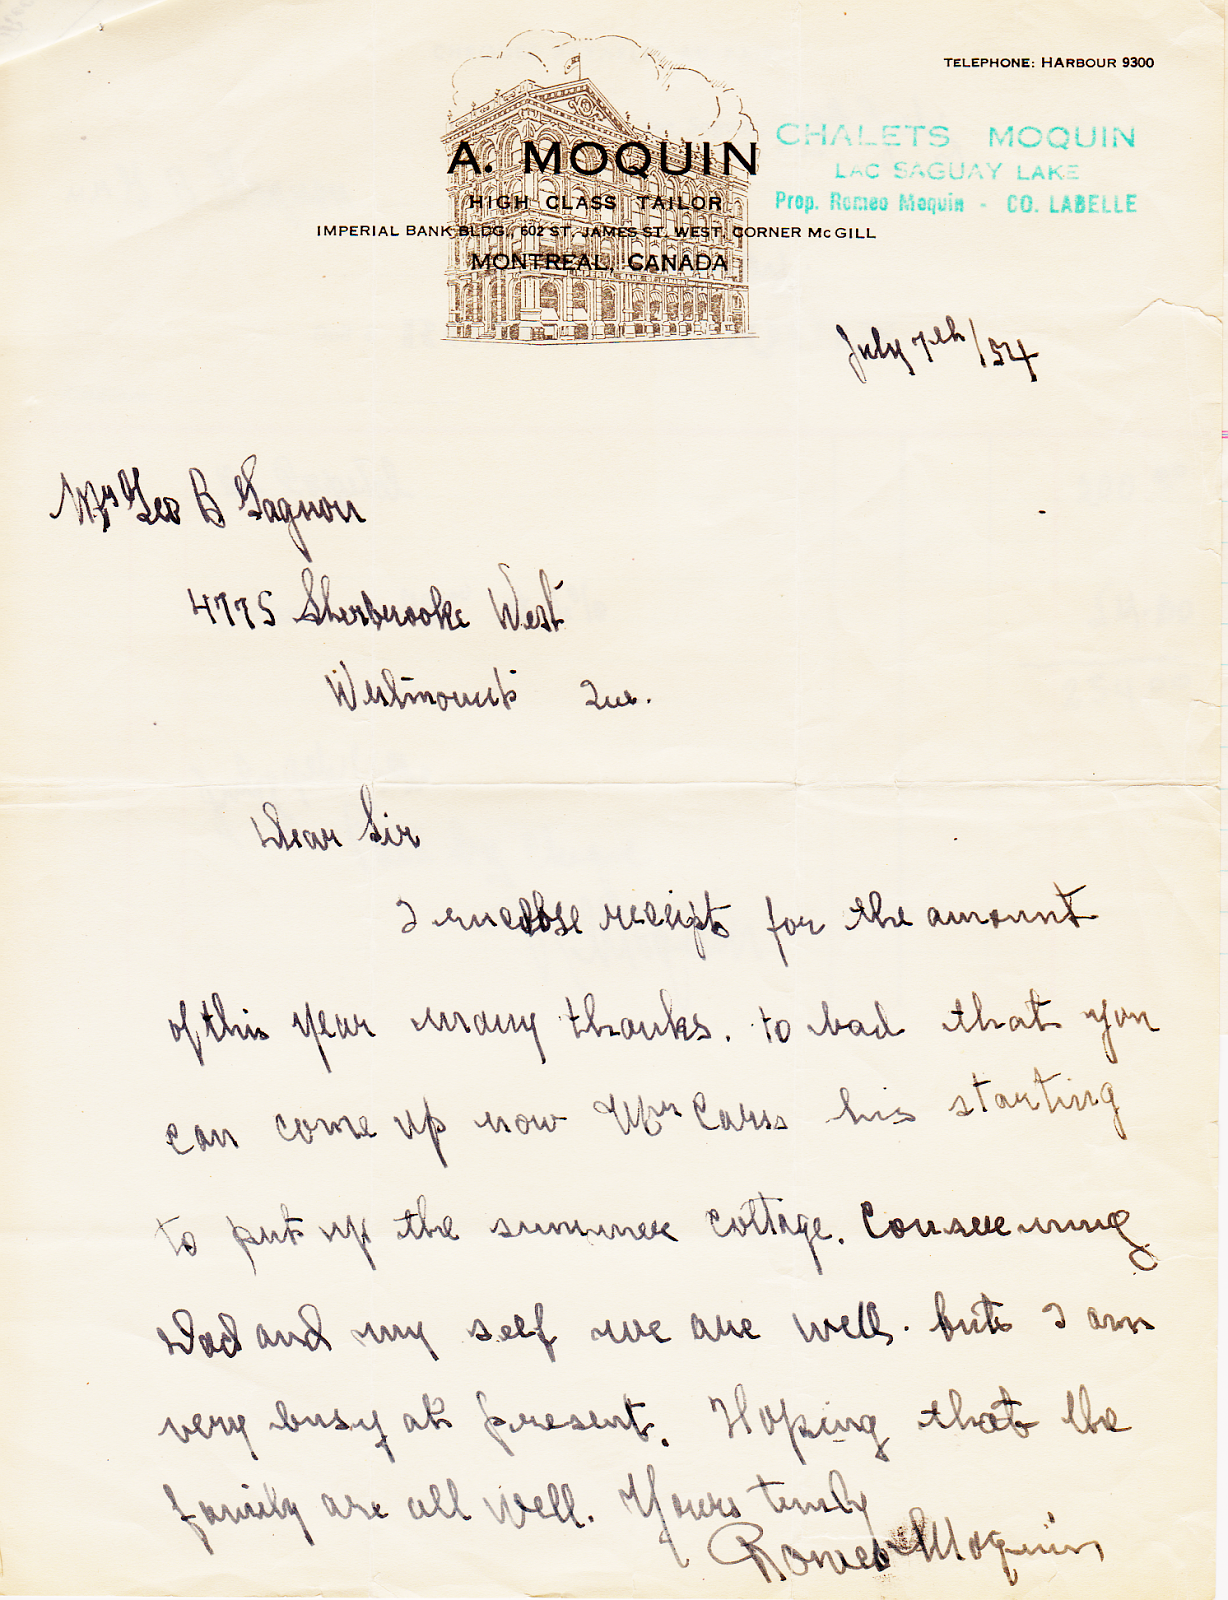 TELEPHONE: HARBOUR 9300
A. MOQUIN
HIGH CLASS TAILOR
IMPERIAL BANK BLDG., 602 ST. JAMES ST. WEST, CORNER McGILL
MONTREAL, CANADA
CHALETS MOQUIN
LAC SAGUAY LAKE
Prop. Romeo Moquin - CO. LABELLE
July 7th/54
Geo B Gagnon
4775 Sherbrooke West
Westmount Que.
Dear Sir
I enclose receipts for the amount
of this year many thanks. to bad that you
can come up now Mr his starting
to put up the summer cottage.
Dad and my self we are well. but I am
very busy at present. Hoping that the
family are all well. Yours truly
Romeo Moquin